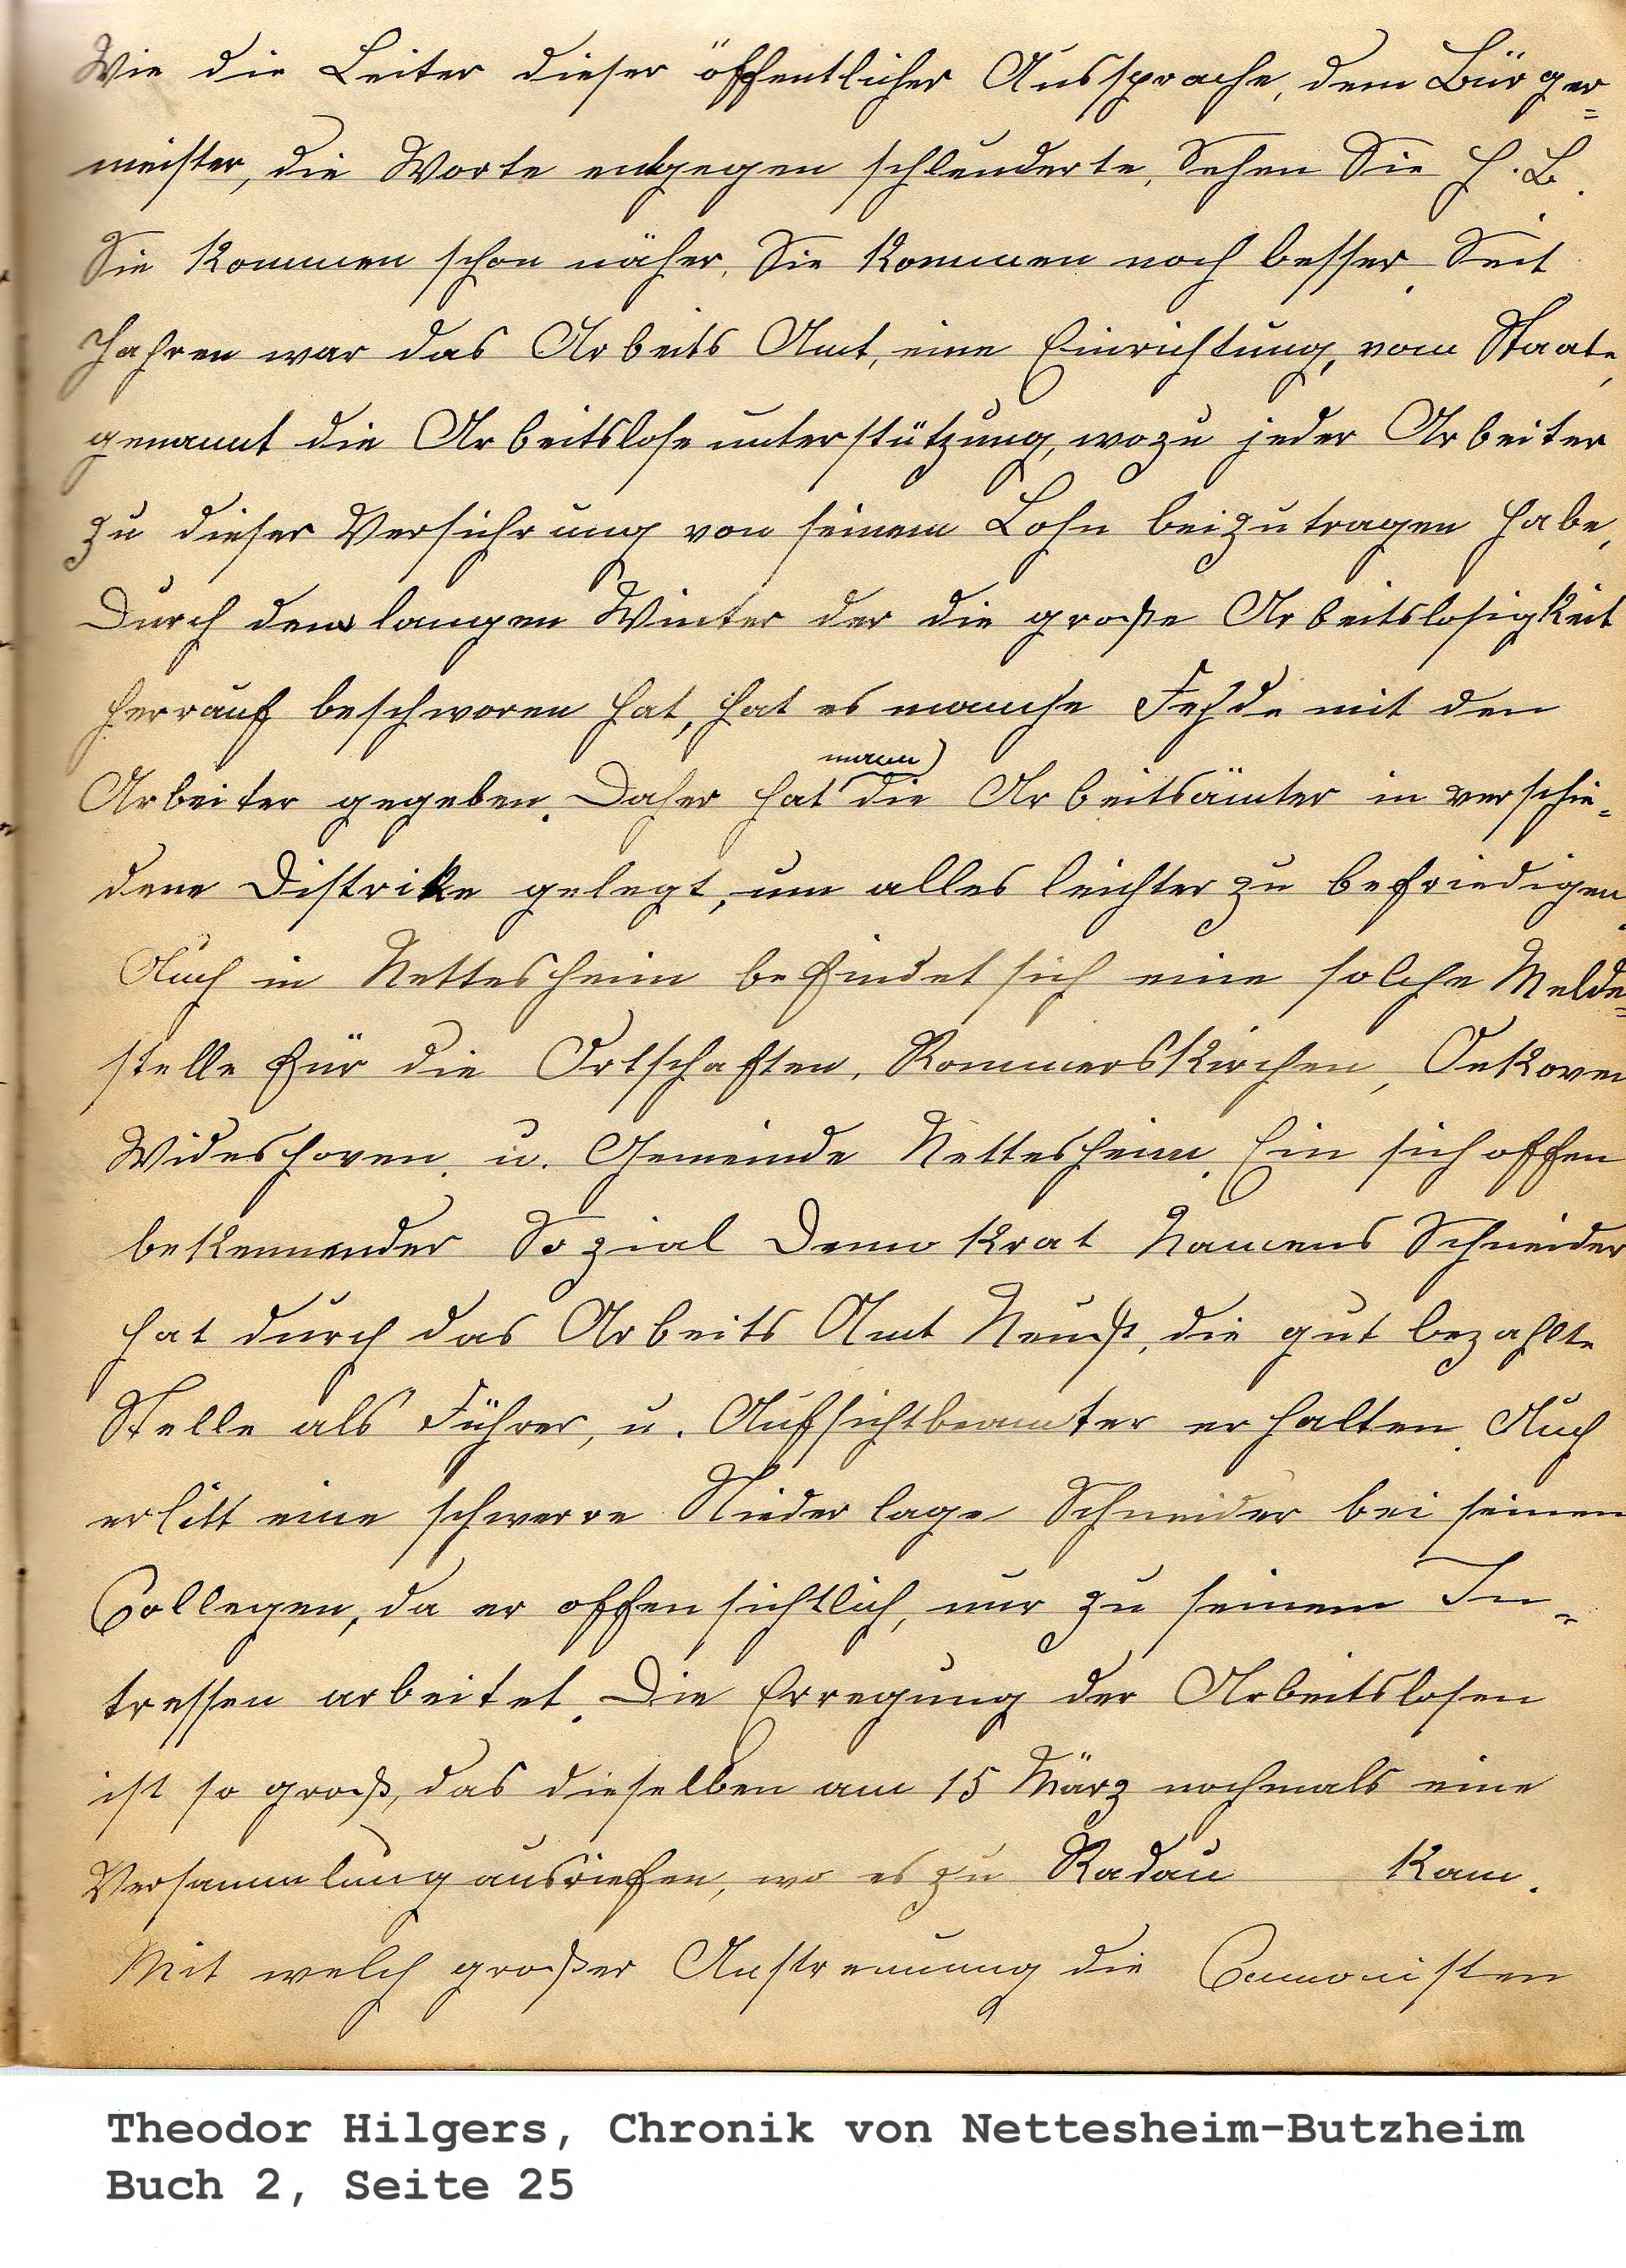 Wie die Leiter dieser öffentlicher Aussprache, dem Bürger=
meister, die Worte entgegen schleuderte, Sehen Sie H. B.
Sie kommen schon näher, Sie kommen noch besser. Seit
Jahren war das Arbeits Amt, eine Einrichtung, vom Staate,
genannt die Arbeitslose unterstützung, wozu jeder Arbeiter
zu dieser Versichrung von seinem Lohn beizutragen habe,
Durch den langen Winter der die große Arbeitslosigkeit
herrauf beschworen hat, hat es manche Fehde mit den
Arbeiter gegeben. Daher hat mann die Arbeitsämter in verschie=
dene Distrike gelegt, um alles leichter zu befriedigen.
Auch in Nettesheim befindet sich eine solche Melde=
stelle für die Ortschaften, Rommerskirchen, Oekoven
Wideshoven, u. Gemeinde Nettesheim. Ein sich offen
bekennender Sozial Demokrat Namens Schneider
hat durch das Arbeits Amt Neuß, die gut bezahlte
Stelle als Führer, u. Aufsichtbeamter erhalten. Auch
erlitt eine schwerre Niederlage Schneider bei seinen
Collegen, da er offensichtlich, nur zu seinem In=
tressen arbeitet. Die Erregung der Arbeitslosen
ist so groß, das dieselben am 15 März nochmals eine
Versammlung ausriefen, wo es zu Radau kam.
Mit welch großer Anstrennung die Commonisten
Theodor Hilgers, Chronik von Nettesheim-Butzheim
Buch 2, Seite 25